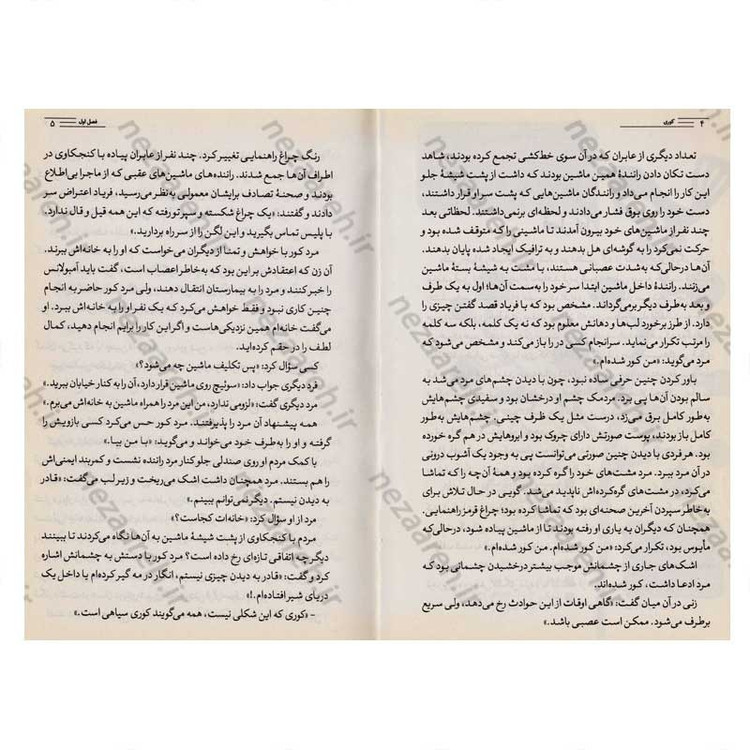 ۴ کوری
تعداد دیگری از عابران که در آن سوی خط‌کشی تجمع کرده بودند، شاهد
دست تکان دادن رانندهٔ همین ماشین بودند که داشت از پشت شیشهٔ جلو
این کار را انجام می‌داد و رانندگان ماشین‌هایی که پشت سر او قرار داشتند،
دست خود را روی بوق فشار می‌دادند و لحظه‌ای برنمی‌داشتند. لحظاتی بعد
چند نفر از ماشین‌های خود بیرون آمدند تا ماشینی را که متوقف شده بود و
حرکت نمی‌کرد را به گوشه‌ای هل بدهند و به ترافیک ایجاد شده پایان بدهند.
آن‌ها درحالی‌که به‌شدت عصبانی هستند، با مشت به شیشهٔ بستهٔ ماشین
می‌زنند. رانندهٔ داخل ماشین ابتدا سر خود را به‌سمت آن‌ها؛ اول به یک طرف
و بعد به‌طرف دیگر برمی‌گرداند. مشخص بود که با فریاد قصد گفتن چیزی را
دارد. از طرز برخورد لب‌ها و دهانش معلوم بود که نه یک کلمه، بلکه سه کلمه
را مرتب تکرار می‌نماید. سرانجام کسی در را باز می‌کند و مشخص می‌شود که
مرد می‌گوید: «من کور شده‌ام.»
باور کردن چنین حرفی ساده نبود، چون با دیدن چشم‌های مرد می‌شد به
سالم بودن آن‌ها پی برد. مردمک چشم او درخشان بود و سفیدی چشم‌هایش
به‌طور کامل برق می‌زد، درست مثل یک ظرف چینی. چشم‌هایش به‌طور
کامل باز بودند، پوست صورتش دارای چروک بود و ابروهایش در هم گره خورده
بود. هر فردی با دیدن چنین صورتی می‌توانست پی به وجود یک آشوب درونی
در آن مرد ببرد. مرد مشت‌های خود را گره کرده بود و همهٔ آن‌چه را که تماشا
می‌کرد، در مشت‌های گره‌کرده‌اش ناپدید می‌شد. گویی در حال تلاش برای
به‌خاطر سپردن آخرین صحنه‌ای بود که تماشا کرده بود؛ چراغ قرمز راهنمایی.
همچنان که دیگران به یاری او رفته بودند تا از ماشین پیاده شود، درحالی‌که
مأیوس بود، تکرار می‌کرد: «من کور شده‌ام. من کور شده‌ام.»
اشک‌های جاری از چشمانش موجب بیشتر درخشیدن چشمانی بود که
مرد ادعا داشت، کور شده‌اند.
زنی در آن میان گفت: «گاهی اوقات از این حوادث رخ می‌دهد، ولی سریع
برطرف می‌شود. ممکن است عصبی باشد.»
فصل اول ۵
رنگ چراغ راهنمایی تغییر کرد. چند نفر از عابران پیاده با کنجکاوی در
اطراف آن‌ها جمع شدند. راننده‌های ماشین‌های عقبی که از ماجرا بی‌اطلاع
بودند و صحنهٔ تصادف برایشان معمولی به‌نظر می‌رسید، فریاد اعتراض سر
دادند و گفتند: «یک چراغ شکسته و سپر تورفته که این همه قیل و قال ندارد.
با پلیس تماس بگیرید و این لگن را از سر راه بردارید.»
مرد کور با خواهش و تمنا از دیگران می‌خواست که او را به خانه‌اش ببرند.
آن زن که اعتقادش بر این بود که به‌خاطر اعصاب است، گفت باید آمبولانس
را خبر کنند و مرد را به بیمارستان انتقال دهند، ولی مرد کور حاضر به انجام
چنین کاری نبود و فقط خواهش می‌کرد که یک نفر او را به خانه‌اش ببرد. او
می‌گفت خانه‌ام همین نزدیکی‌هاست و اگر این کار را برایم انجام دهید، کمال
لطف را در حقم کرده‌اید.
کسی سؤال کرد: «پس تکلیف ماشین چه می‌شود؟»
فرد دیگری جواب داد: «سوئیچ روی ماشین قرار دارد، آن را به کنار خیابان ببرید.»
مرد دیگری گفت: «لزومی ندارد، من این مرد را همراه ماشین به خانه‌اش می‌برم.»
همه پیشنهاد آن مرد را پذیرفتند. مرد کور حس می‌کرد کسی بازویش را
گرفته و او را به‌طرف خود می‌خواند و می‌گوید: «با من بیا.»
با کمک مردم او روی صندلی جلو کنار مرد راننده نشست و کمربند ایمنی‌اش
را هم بستند. مرد همچنان داشت اشک می‌ریخت و زیر لب می‌گفت: «قادر
به دیدن نیستم. دیگر نمی‌توانم ببینم.»
مرد از او سؤال کرد: «خانه‌ات کجاست؟»
مردم با کنجکاوی از پشت شیشهٔ ماشین به آن‌ها نگاه می‌کردند تا ببینند
دیگر چه اتفاقی تازه‌ای رخ داده است؟ مرد کور با دستش به چشمانش اشاره
کرد و گفت: «قادر به دیدن چیزی نیستم، انگار در مه گیر کرده‌ام یا داخل یک
دریای شیر افتاده‌ام.!»
- «کوری که این شکلی نیست، همه می‌گویند کوری سیاهی است.»
nezaareh.ir